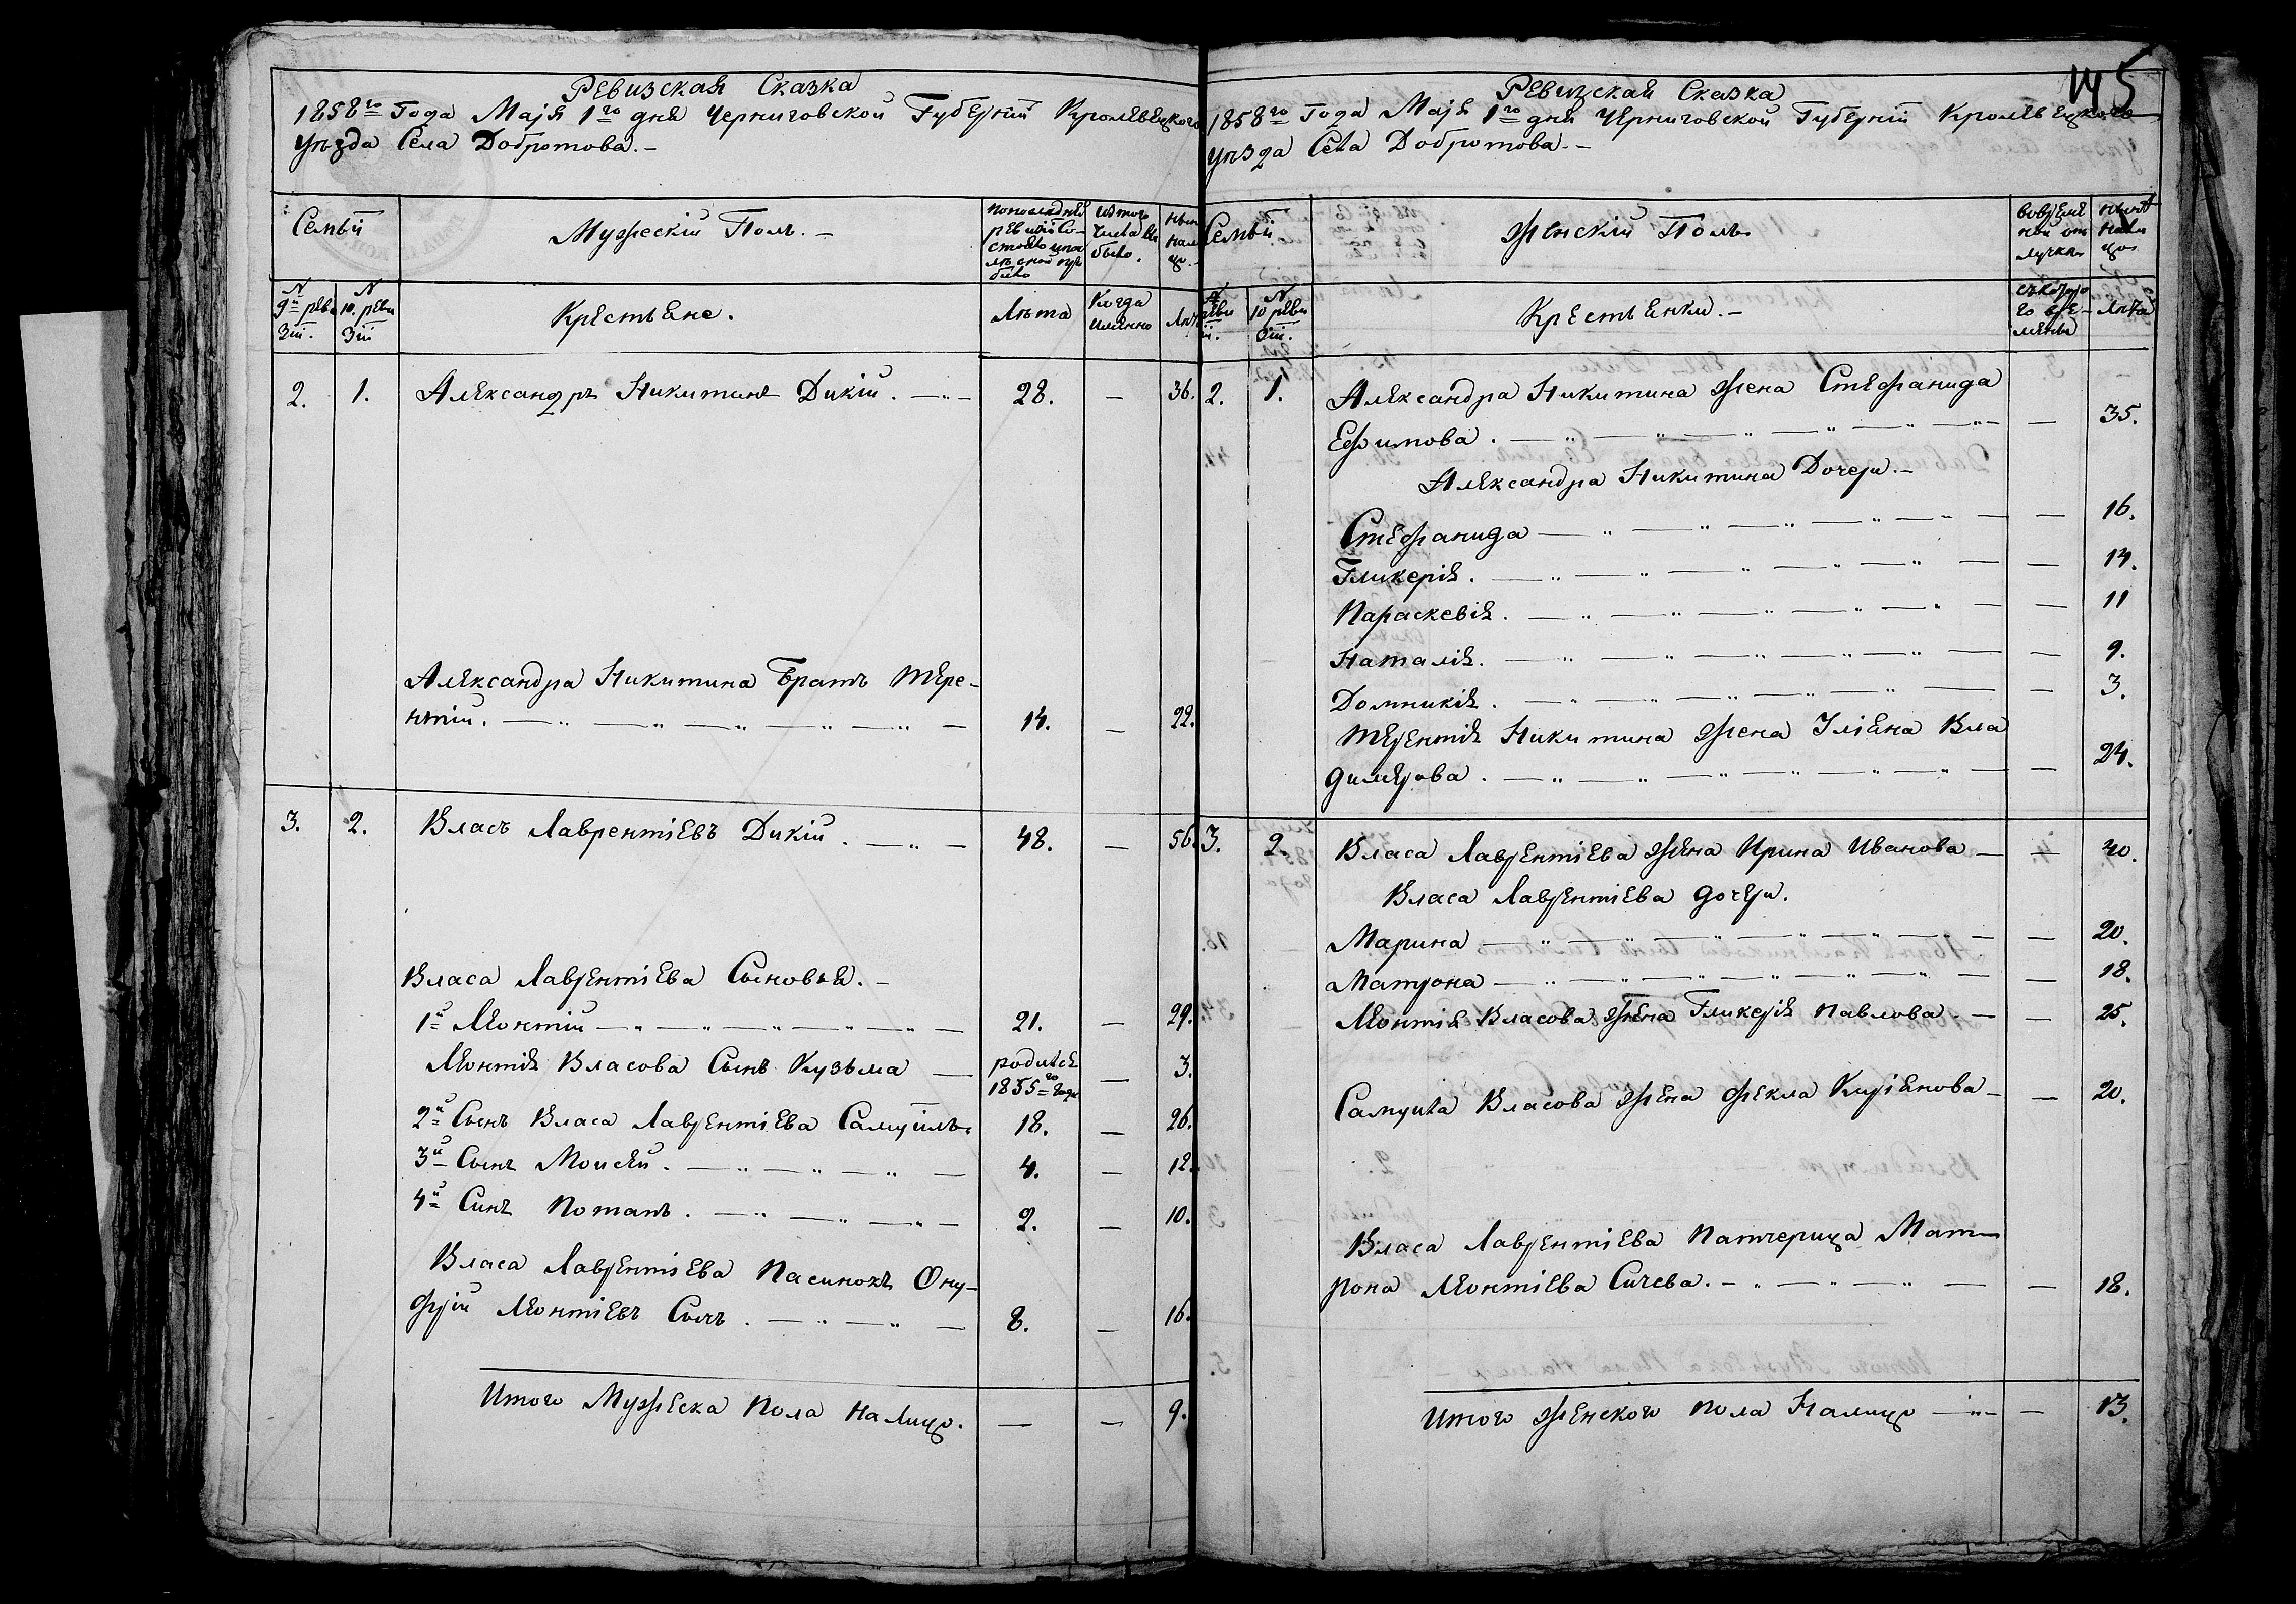 Ревизская Сказка
1858го Года Маjя 1го дня Черниговской Губернiй Кролевецкого
Уѣзда Села Добротова.–
Семьй
Мужескiй Полъ.–
По последней ревизiй Состояло и после оной прибыло
Из того числа выбыло.
Ныне на лицо.
N 9й ревизiи.
N 10. ревизiи
Крестьяне.
Лѣта
Когда именно
Лѣта
2. 1. Александръ Никитинъ Дикiй. 28. — 36.
Александра Никитина Братъ Тере-
нтiй. 14. — 22.
3. 2. Власъ Лаврентiевъ Дикiй. 48. — 56.
Власа Лаврентiева Сыновья.–
1й Леонтiй 21. — 29.
Леонтiя Власова Сынъ Кузьма родился 1855го года — 3.
2й Сынъ Власа Лаврентiева Самуилъ. 18. — 26.
3й Сынъ Моисей. 4. — 12.
4й Синъ Потапъ. 2. — 10.
Власа Лаврентiева Пасинокъ Ону-
фрiй Леонтiевъ Сычъ. 8. — 16.
Итого Мужеска Пола На Лицо. — — 9.
145
Ревизская Сказка
1858го Года Маjя 1го дня Черниговской Губернiй Кролевецкого
Уѣзда Села Добротова.–
Семьй
Женскiй Полъ
во временной отлучке
ныне на лицо
N ревизiи.
N 10 ревизiи.
Крестьянки.–
съ которого времени
Лѣта
2. 1. Александра Никитина Жена Стефанида
Ефимова. — 35.
Александра Никитина Дочери.–
Стефанида — 16.
Гликерiя. — 14.
Параскевiя. — 11
Наталiя. — 9.
Домникiя. — 3.
Терентiя Никитина Жена Улiяна Вла
димерова. — 24.
3. 2. Власа Лаврентiева Жена Ирина Иванова — 40.
Власа Лаврентiева дочери.
Марина — 20.
Матрона — 18.
Леонтiя Власова Жена Гликерiя Павлова. — 25.
Самуила Власова Жена Фекла Кирiянова — 20.
Власа Лаврентiева Патчерица Мат-
рона Леонтiева Сичева. — 18.
Итого Женского Пола На лицо — 13.